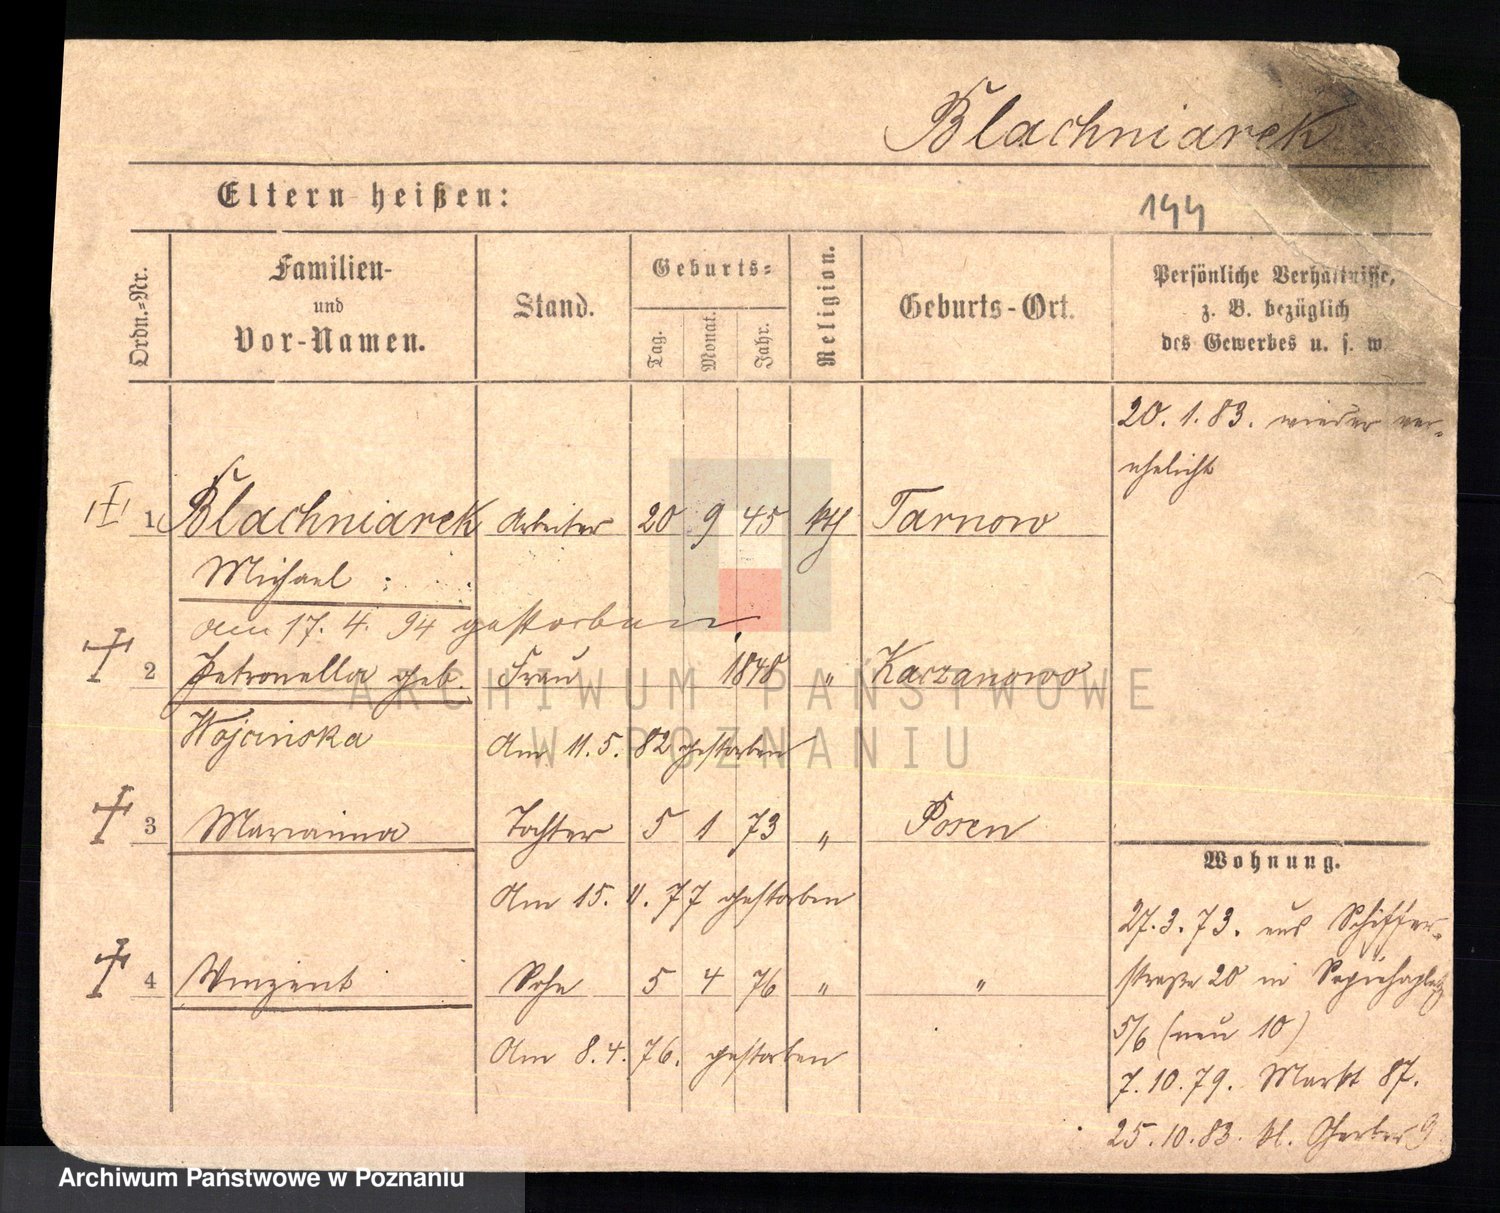 Blachniarek
Eltern heißen:
144
Ordn.-Nr.
Familien-
und
Vor-Namen.
Stand.
Geburts-
Tag.
Monat.
Jahr.
Religion.
Geburts-Ort.
Persönliche Verhältnisse,
z. B. bezüglich
des Gewerbes u. s. w.
20. 1. 83. wieder ver-
ehelicht
1 Blachniarek Arbeiter 20 9 45 kth Tarnowo
Michael
am 17. 4. 94 gestorben.
2 Petronella geb. Frau 1848 " Karzanowo
Wojcinska Am 11. 5. 82 gestorben
3 Marianna Tochter 5 1 73 " Posen
Am 15. 11. 77 gestorben
4 Vinzent Sohn 5 4 76 " "
Am 8. 4. 76. gestorben
Wohnung.
27. 3. 73. aus Schiffer-
straße 20 in Sapiehaplatz
5/6 (neu 10)
7. 10. 79. Markt 87.
25. 10. 83. kl. Gerber 9
ARCHIWUM PAŃSTWOWE
W POZNANIU
Archiwum Państwowe w Poznaniu